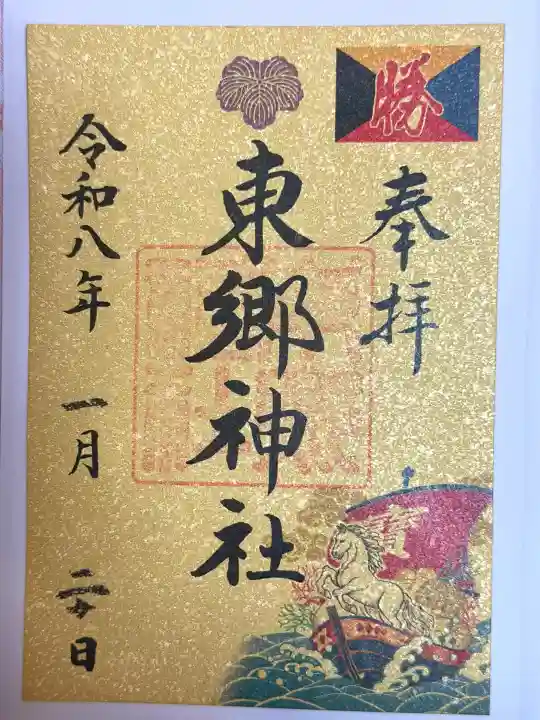 勝
奉拝
東郷神社
令和八年 一月 日
寳